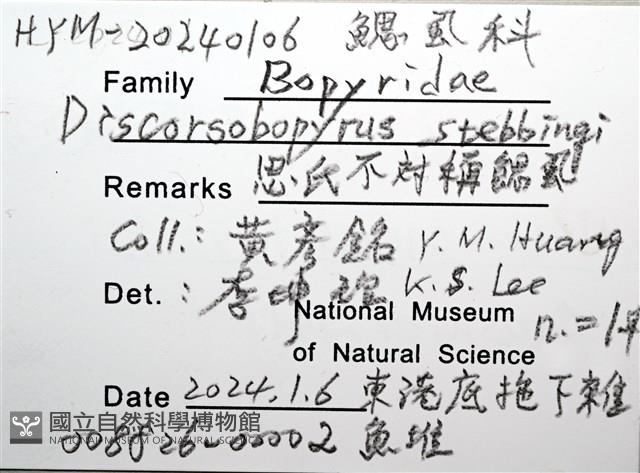 HYM-20240106 鰓虱科
Family Bopyridae
Discorsobopyrus stebbingi
Remarks 思氏不対稱鰓虱
Coll.: 黃彥銘 Y. M. Huang
Det. : 李坤瑄 K. S. Lee
National Museum n. = 1♀
of Natural Science
Date 2024.1.6 東港底拖下雜
國立自然科學博物館
NATIONAL MUSEUM OF NATURAL SCIENCE
魚堆